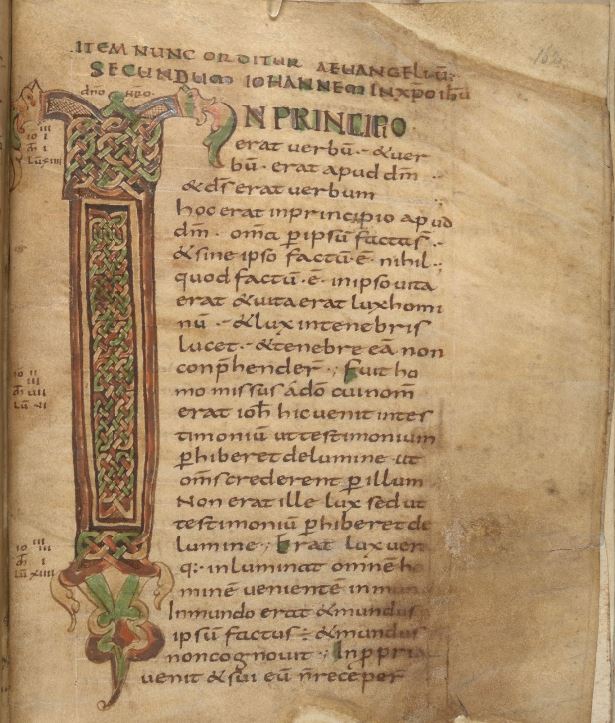 ITEM NUNC ORDITUR AEUANGELIŪ:
SECUNDUM IOHANNEM IN XPO IHŪ
IN PRINCIPIO
erat uerbū · & uer
bū · erat apud dm̄ ·
& ds̄ erat uerbum
hoc erat in principio apud
dm̄ · om̄a ꝑ ipsū factaš ·
& sine ipso factū · ē · nihil ·
quod factū · ē · in ipso uita
erat & uita erat lux homi
nū · & lux in tenebris
lucet · & tenebre eā non
conp̄hender · ; Fuit ho
mo missus a dō cui nom̄
erat ioh̄ hic uenit in tes
timoniū ut testimonium
ꝑhiberet de lumine ut
om̄s crederent ꝑ illum
Non erat ille lux sed ut
testimoniū ꝑhiberet de
lumine ; Erat lux uer
q: inluminat omnē ho
minē uenientē in mun
In mundo erat & mundus
ipsū factus : & mundus
non cognouit ; In ꝓpria
uenit & sui eū n̄ receper